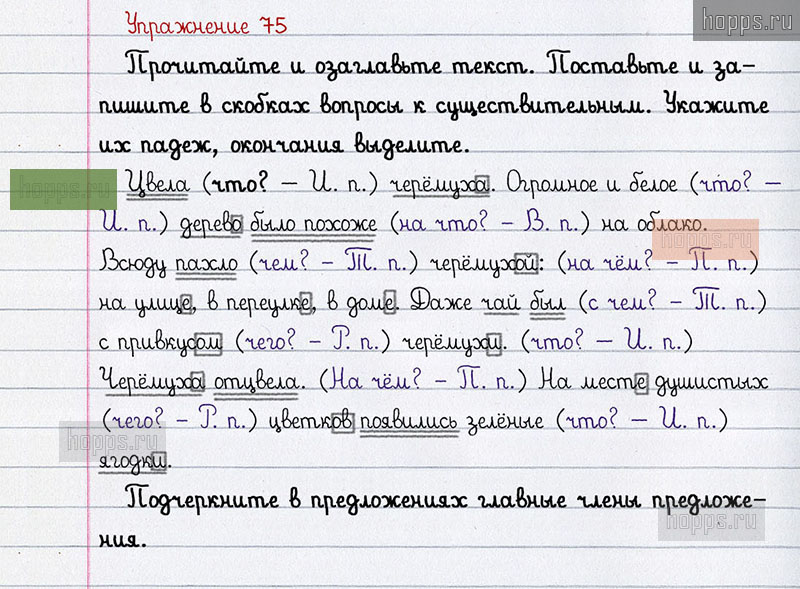 hopps.ru
Упражнение 75
Прочитайте и озаглавьте текст. Поставьте и за-
пишите в скобках вопросы к существительным. Укажите
их падеж, окончания выделите.
hopps.ru
Цвела (что? – И. п.) черёмуха. Огромное и белое (что? –
И. п.) дерево было похоже (на что? – В. п.) на облако.
hopps.ru
Всюду пахло (чем? – Т. п.) черёмухой: (на чём? – П. п.)
на улице, в переулке, в доме. Даже чай был (с чем? – Т. п.)
с привкусом (чего? – Р. п.) черёмухи. (что? – И. п.)
Черёмуха отцвела. (На чём? – П. п.) На месте душистых
(чего? – Р. п.) цветков появились зелёные (что? – И. п.)
hopps.ru
ягодки.
Подчеркните в предложениях главные члены предложе-
hopps.ru
ния.